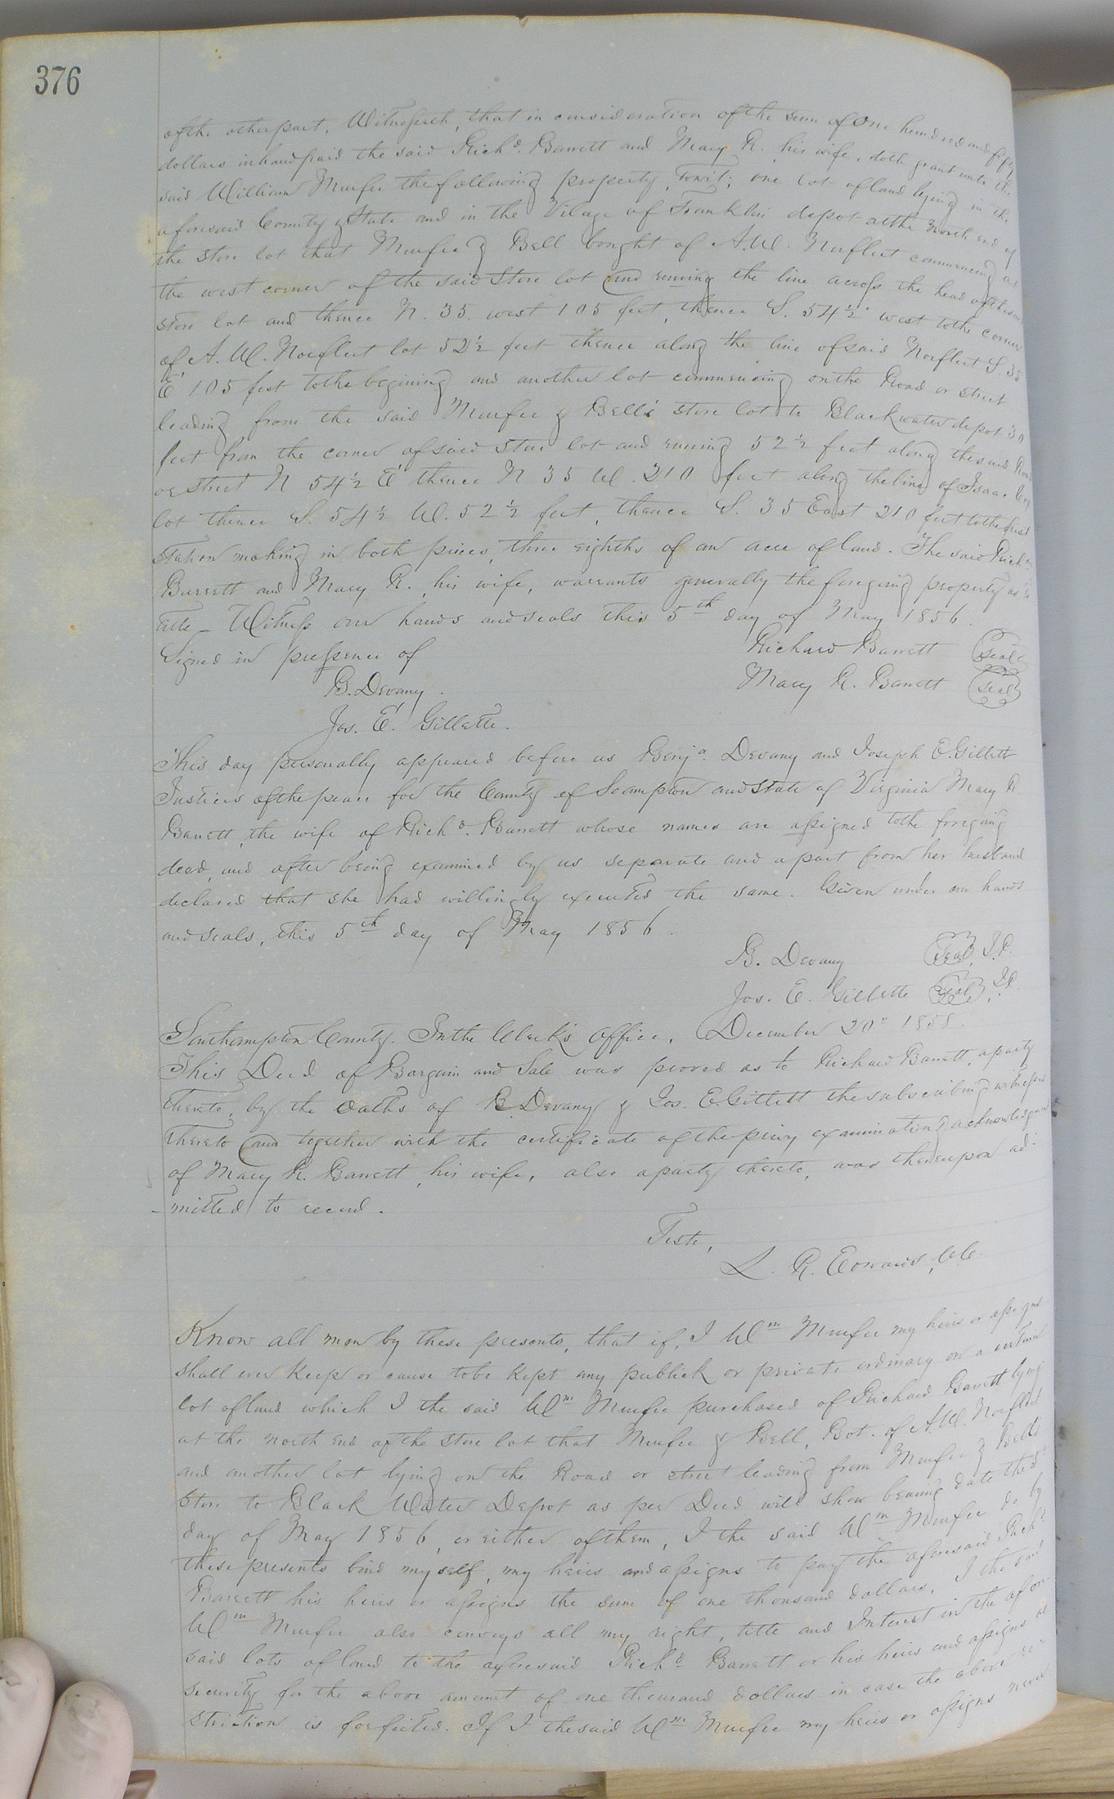 376
of the other part. Witnesseth, that in consideration of the sum of One hundred and fifty
dollars in hand paid the said Richd. Barrett and Mary R. his wife, doth grant unto the
said William Murfee the following property, towit; one lot of land lying in the
aforesaid County & State and in the Village of Franklin depot at the North end of
the store lot that Murfee & Bell bought of A.W. Norfleet commencing at
the west corner of the said store lot and runing the line across the head of the said
store lot and thence N. 35. west 105 feet, thence S. 54½ west to the corner
of A. W. Norfleet lot 52½ feet thence along the line of said Norfleet S. 35
E 105 feet to the begining and another lot commencing on the Road or street
leading from the said Murfee & Bell's store lot to Blackwater depot 30
feet from the corner of said store lot and runing 52½ feet along the said Road
or street N 54½ E thence N 35 W. 210 feet along the line of Isaac
lot thence S. 54½ W. 52½ feet, thence S. 35 East 210 feet to the first
Station making in both pieces, three eighths of an acre of land. The said Richd.
Barrett and Mary R., his wife, warrants generally the foregoing property as to
title _ Witness our hands and seals this 5th day of May 1856.
Signed in presence of Richard Barrett (Seal)
B. Devany. Mary R. Barrett (Seal)
Jos. E. Gillette.
This day personally appeared before us Benja. Devany and Joseph E. Gillett
Justices of the peace for the County of Soampton and State of Virginia Mary R
Barrett, the wife of Richd. Barrett whose names are assigned to the foregoing
deed, and after being examined by us separate and apart from her husband
declared that she had willingly executed the same. Given under our hands
and seals, this 5th day of May 1856.
B. Devany (Seal) J.P.
Jos. E. Gillette (Seal) J.P.
Southampton County. In the Clerk's Office, December 20" 1858.
This Deed of Bargain and Sale was proved as to Richard Barrett, a party
thereto, by the Oaths of B. Devany & Jos. E. Gillett the subscribing witnesses
thereto and together with the certificate of the privy examination & acknowledgment
of Mary R. Barrett, his wife, also a party thereto, was thereupon ad-
-mitted to record.
Teste,
L. R. Edwards, C.C.
Know all men by these presents, that if, I Wm Murfee my heirs or assigns
shall ever keep or cause to be kept any publick or private ordinary on a certain
lot of land which I the said Wm Murfee purchased of Richard Barrett lying
at the north end of the store lot that Murfee & Bell, Bot. of A.W. Norfleet
and another lot lying on the Road or street leading from Murfee & Bells
store to Black Water Depot as per Deed will show bearing date the 5
day of May 1856, or either of them, I the said Wm Murfee do by
these presents bind myself, my heirs and assigns to pay the aforesaid Richd.
Barrett his heirs or assigns the sum of one thousand dollars. I the said
Wm Murfee also conveys all my right, title and Interest in the afore-
said lots of land to the aforesaid Richd. Barrett or his heirs and assigns as
security for the above amount of one thousand dollars in case the above re-
striction is forfeited. If I the said Wm Murfee my heirs or assigns never